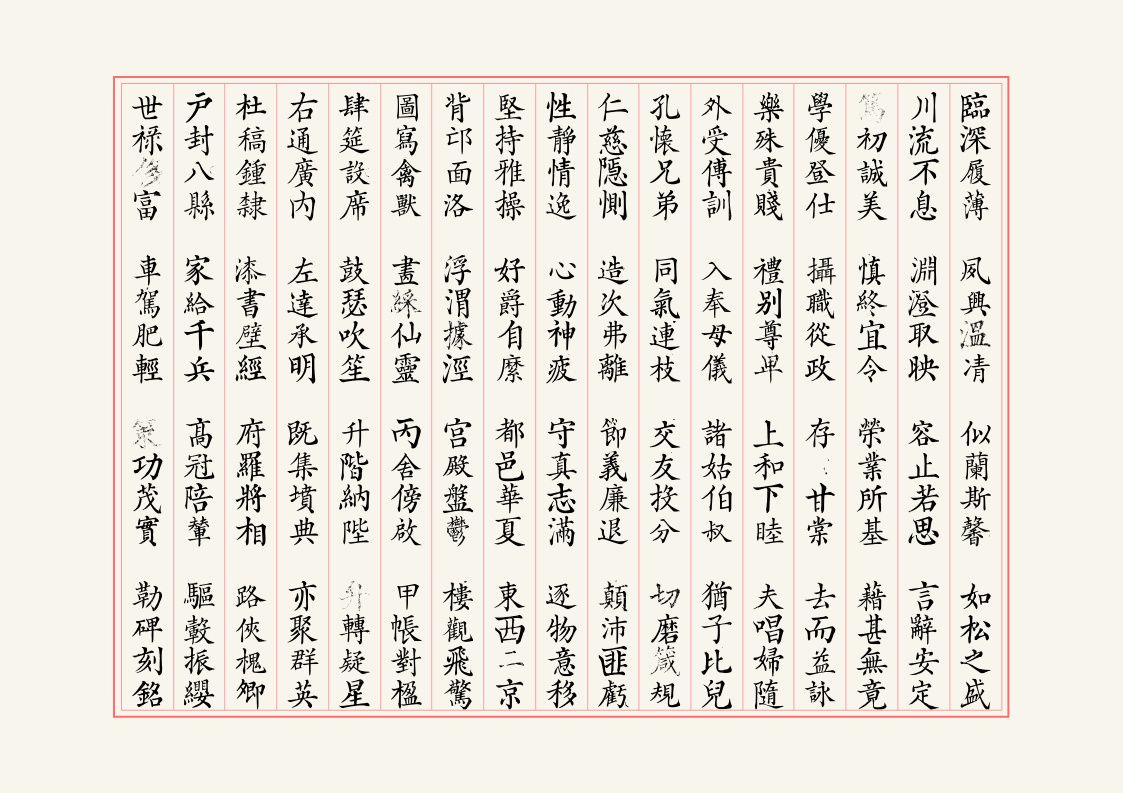 臨深履薄 夙興溫凊 似蘭斯馨 如松之盛
川流不息 淵澄取映 容止若思 言辭安定
篤初誠美 慎終宜令 榮業所基 藉甚無竟
學優登仕 攝職從政 存甘棠 去而益詠
樂殊貴賤 禮别尊卑 上和下睦 夫唱婦隨
外受傅訓 入奉母儀 諸姑伯叔 猶子比兒
孔懷兄弟 同氣連枝 交友投分 切磨箴規
仁慈隱惻 造次弗離 節義廉退 顛沛匪虧
性靜情逸 心動神疲 守真志滿 逐物意移
堅持雅操 好爵自縻 都邑華夏 東西二京
背邙面洛 浮渭據涇 宮殿盤鬱 樓觀飛驚
圖寫禽獸 畫綵仙靈 丙舍傍啟 甲帳對楹
肆筵設席 鼓瑟吹笙 升階納陛 弁轉疑星
右通廣內 左達承明 既集墳典 亦聚群英
杜稿鍾隸 漆書壁經 府羅將相 路俠槐卿
戶封八縣 家給千兵 高冠陪輦 驅轂振纓
世祿侈富 車駕肥輕 策功茂實 勒碑刻銘